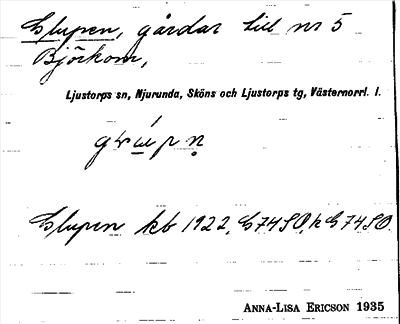 Glupen, gårdar till nr 5
Björkom,
Ljustorps sn, Njurunda, Sköns och Ljustorps tg, Västernorrl. l.
Glupen kb 1922, G74SO, k G74SO.
ANNA-LISA ERICSON 1935